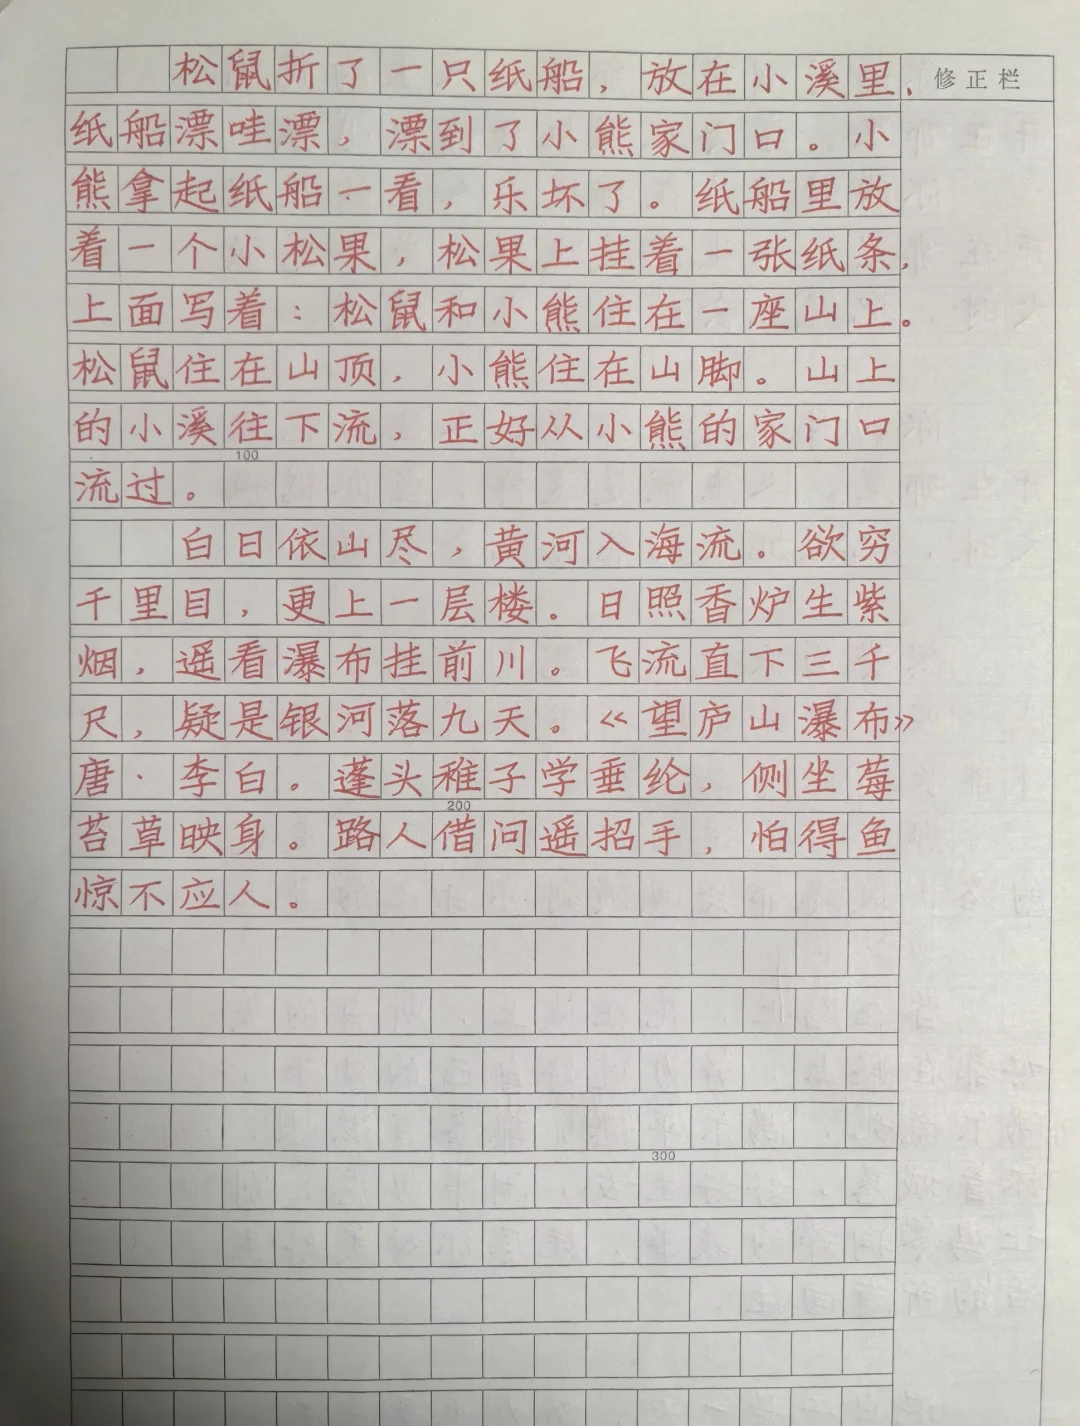 松鼠折了一只纸船，放在小溪里，
修正栏
纸船漂哇漂，漂到了小熊家门口。小
熊拿起纸船一看，乐坏了。纸船里放
着一个小松果，松果上挂着一张纸条，
上面写着：松鼠和小熊住在一座山上。
松鼠住在山顶，小熊住在山脚。山上
的小溪往下流，正好从小熊的家门口
100
流过。
白日依山尽，黄河入海流。欲穷
千里目，更上一层楼。日照香炉生紫
烟，遥看瀑布挂前川。飞流直下三千
尺，疑是银河落九天。《望庐山瀑布》
唐·李白。蓬头稚子学垂纶，侧坐莓
200
苔草映身。路人借问遥招手，怕得鱼
惊不应人。
300